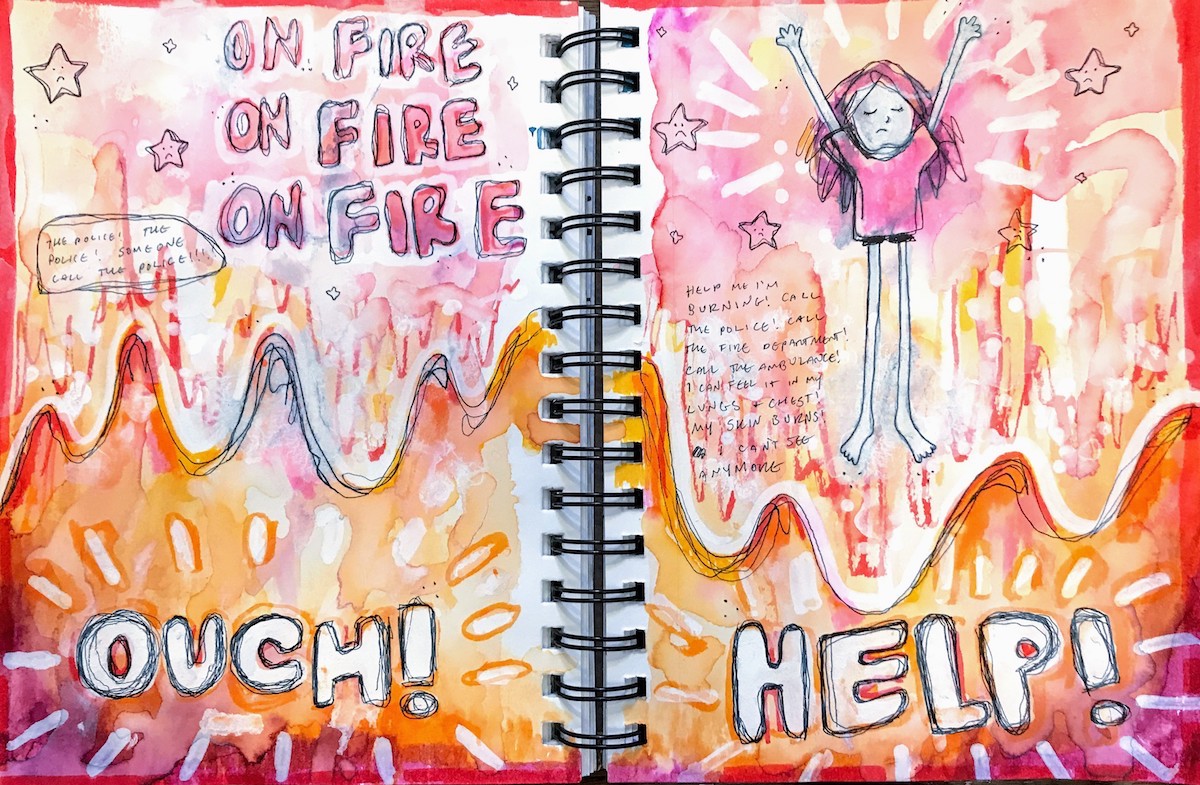 ON FIRE
ON FIRE
ON FIRE
THE POLICE! THE
POLICE! SOMEONE
CALL THE POLICE!!!!
OUCH!
HELP ME I'M
BURNING! CALL
THE POLICE! CALL
THE FIRE DEPARTMENT!
CALL THE AMBULANCE!
I CAN FEEL IT IN MY
LUNGS & CHEST!
MY SKIN BURNS!
I CAN'T SEE
ANYMORE
HELP!